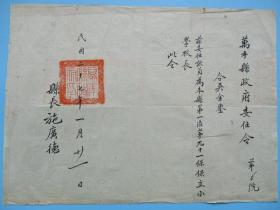 萬年縣政府委任令
第 號
令吳金璽
茲委任該員為本縣第一區第九十一保保立小
學校長
此令
縣長施廣德
民國二十七年一月廿一日